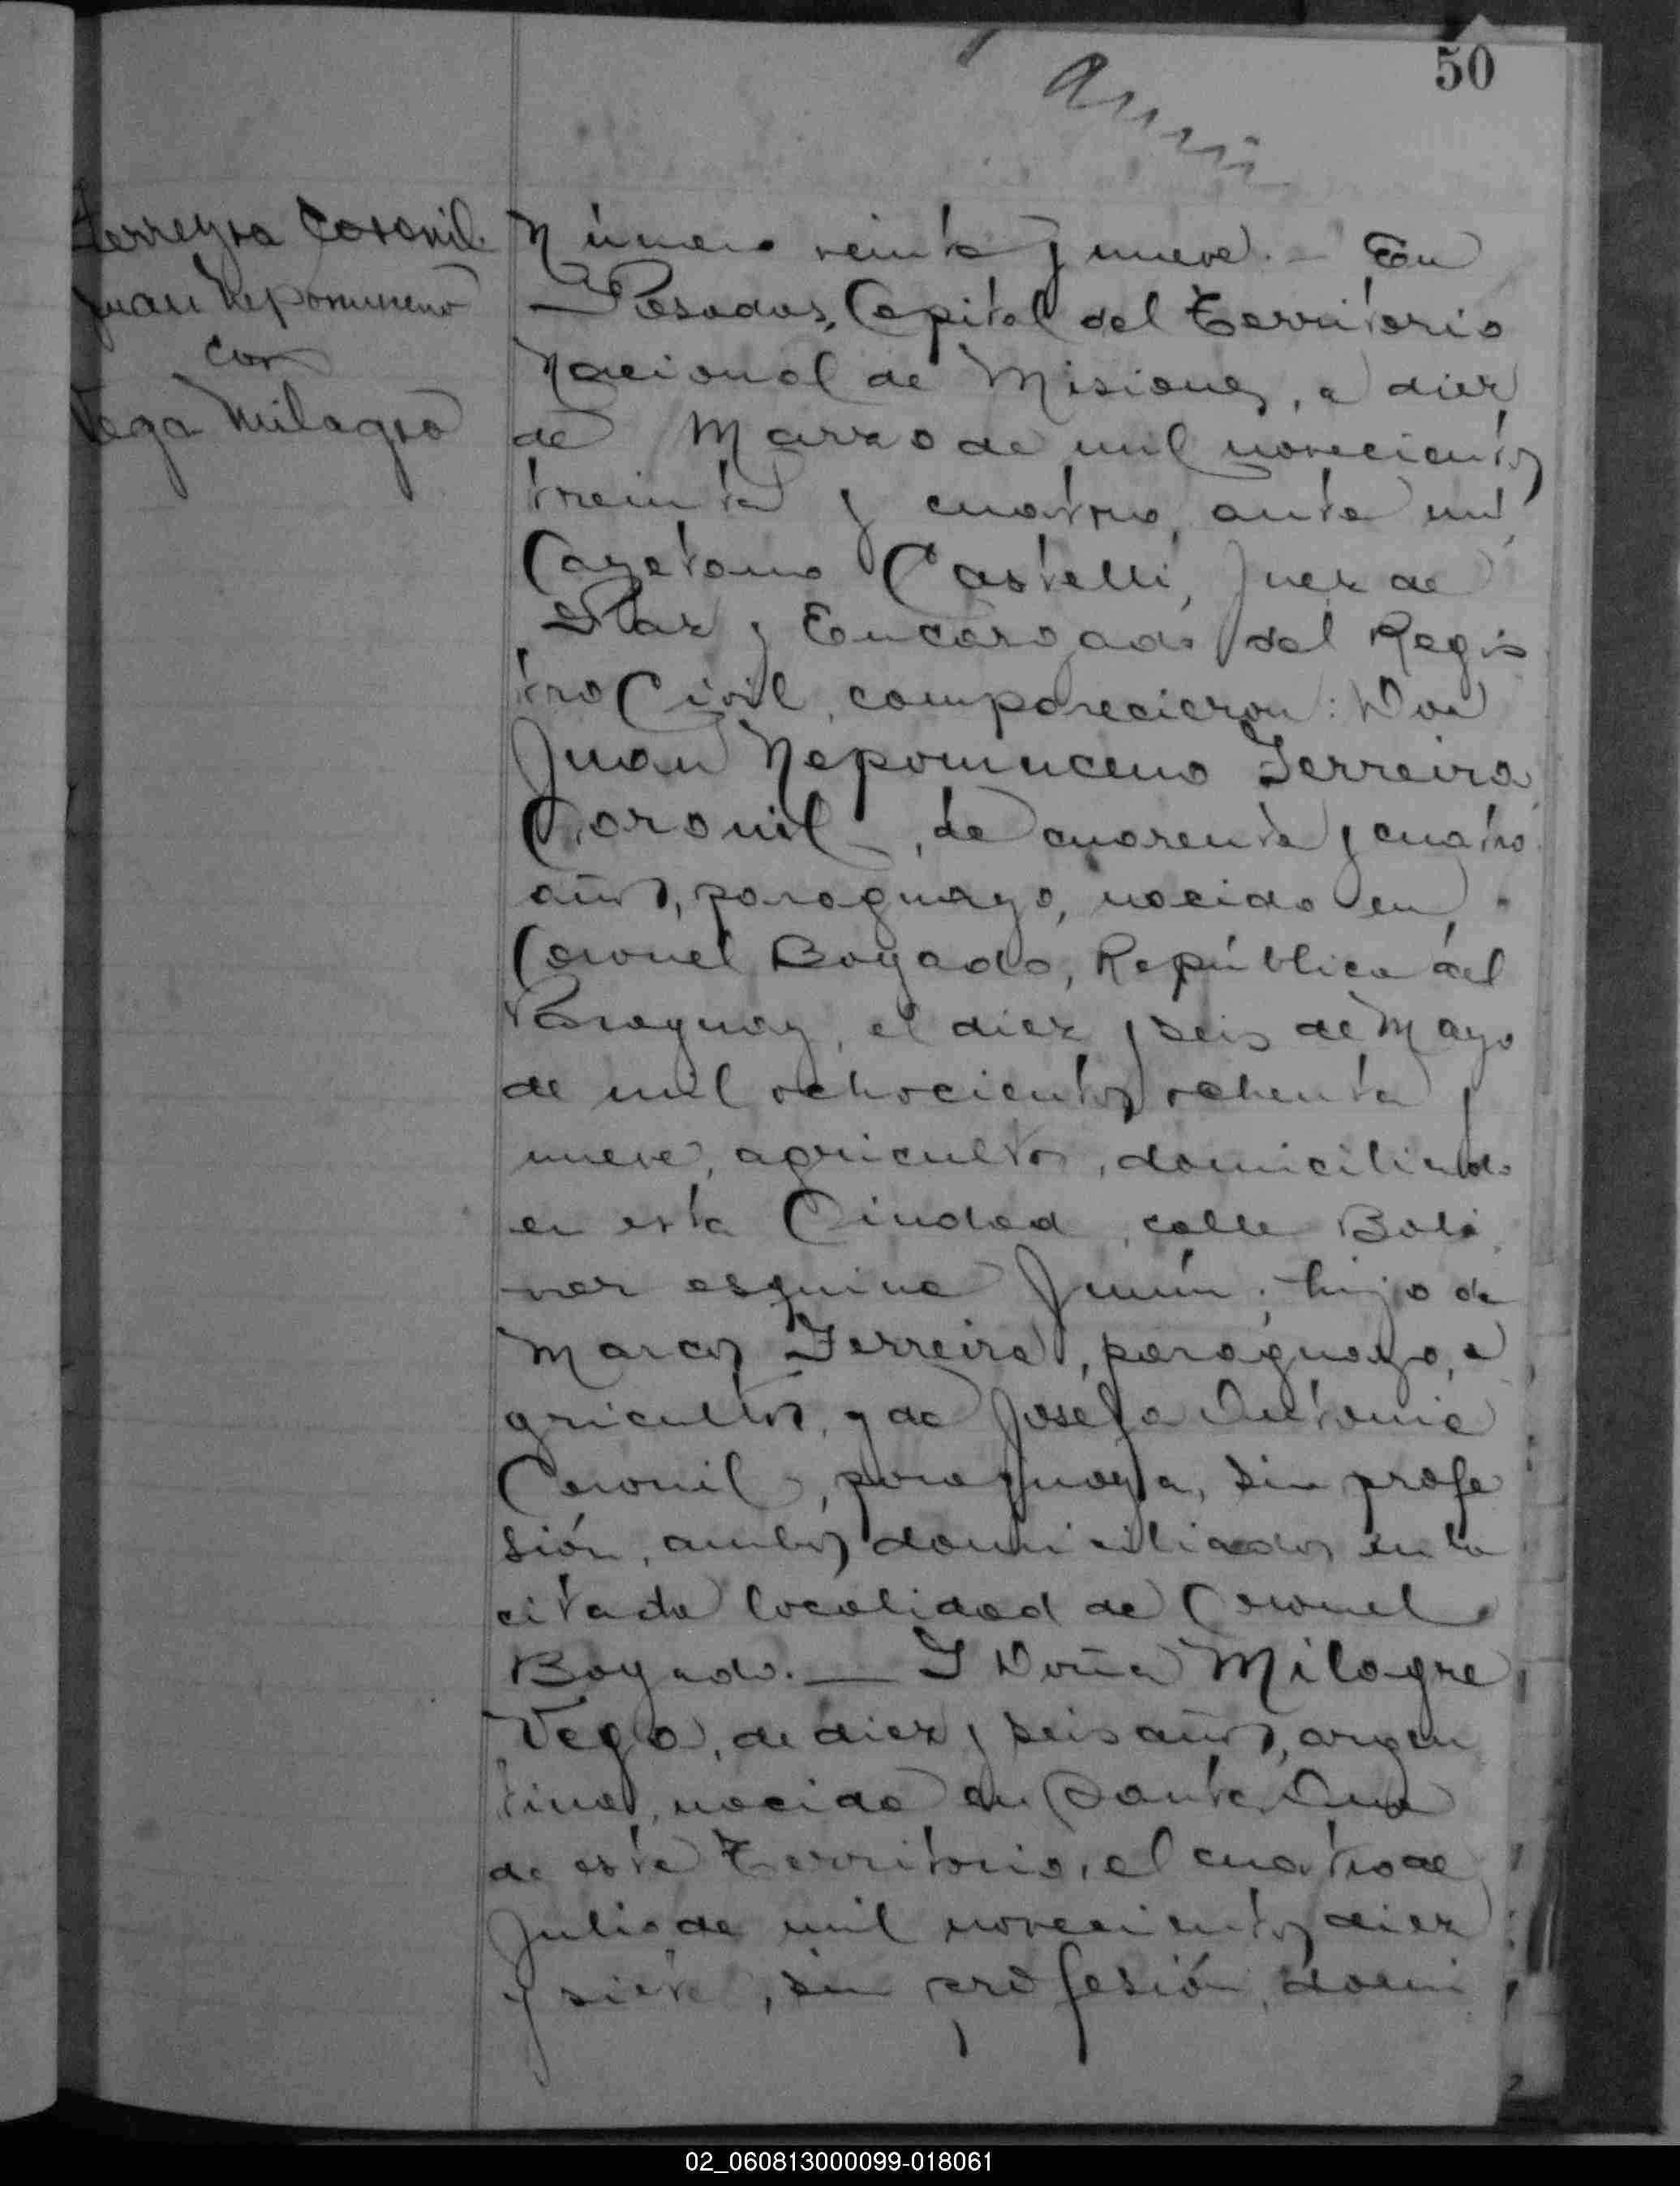 50
Ferreyra Coronil
Juan Nepomuceno
con
Vega Milagro
Número veinte y nueve. — En
Posadas, Capital del Territorio
Nacional de Misiones, a diez
de Marzo de mil novecientos
treinta y cuatro, ante mí,
Cayetano Castelli, Juez de
Paz y Encargado del Regis
tro Civil, comparecieron: Don
Juan Nepomuceno Ferreira
Coronil, de cuarenta y cuatro
años, paraguayo, nacido en
Coronel Bogado, República del
Paraguay, el diez y seis de Mayo
de mil ochocientos ochenta y
nueve, agricultor, domiciliado
en esta Ciudad, calle Bolí
var esquina Junín; hijo de
Marcos Ferreira, paraguayo, a
gricultor, y de Josefa Antonia
Coronil, paraguaya, sin profe
sión, ambos domiciliados en la
citada localidad de Coronel
Bogado. — Y Doña Milagre
Vega, de diez y seis años, argen
tina, nacida en Santa Ana
de este Territorio, el cuatro de
Julio de mil novecientos diez
y siete, sin profesión, domi
02_060813000099-018061